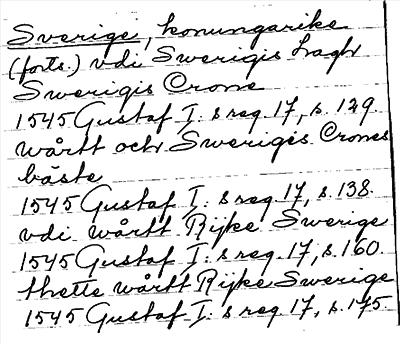 Sverige, konungarike
(forts.) vdi Swerigis Lagh
Swerigis Crone
1545 Gustaf I:s reg. 17, s. 129.
wårtt och Swerigis Crones
bäste
1545 Gustaf I:s reg. 17, s. 138.
vdi wårtt Rijke Swerige
1545 Gustaf I:s reg. 17, s. 160.
thette wårtt Rijke Swerige
1545 Gustaf I:s reg. 17, s. 175.